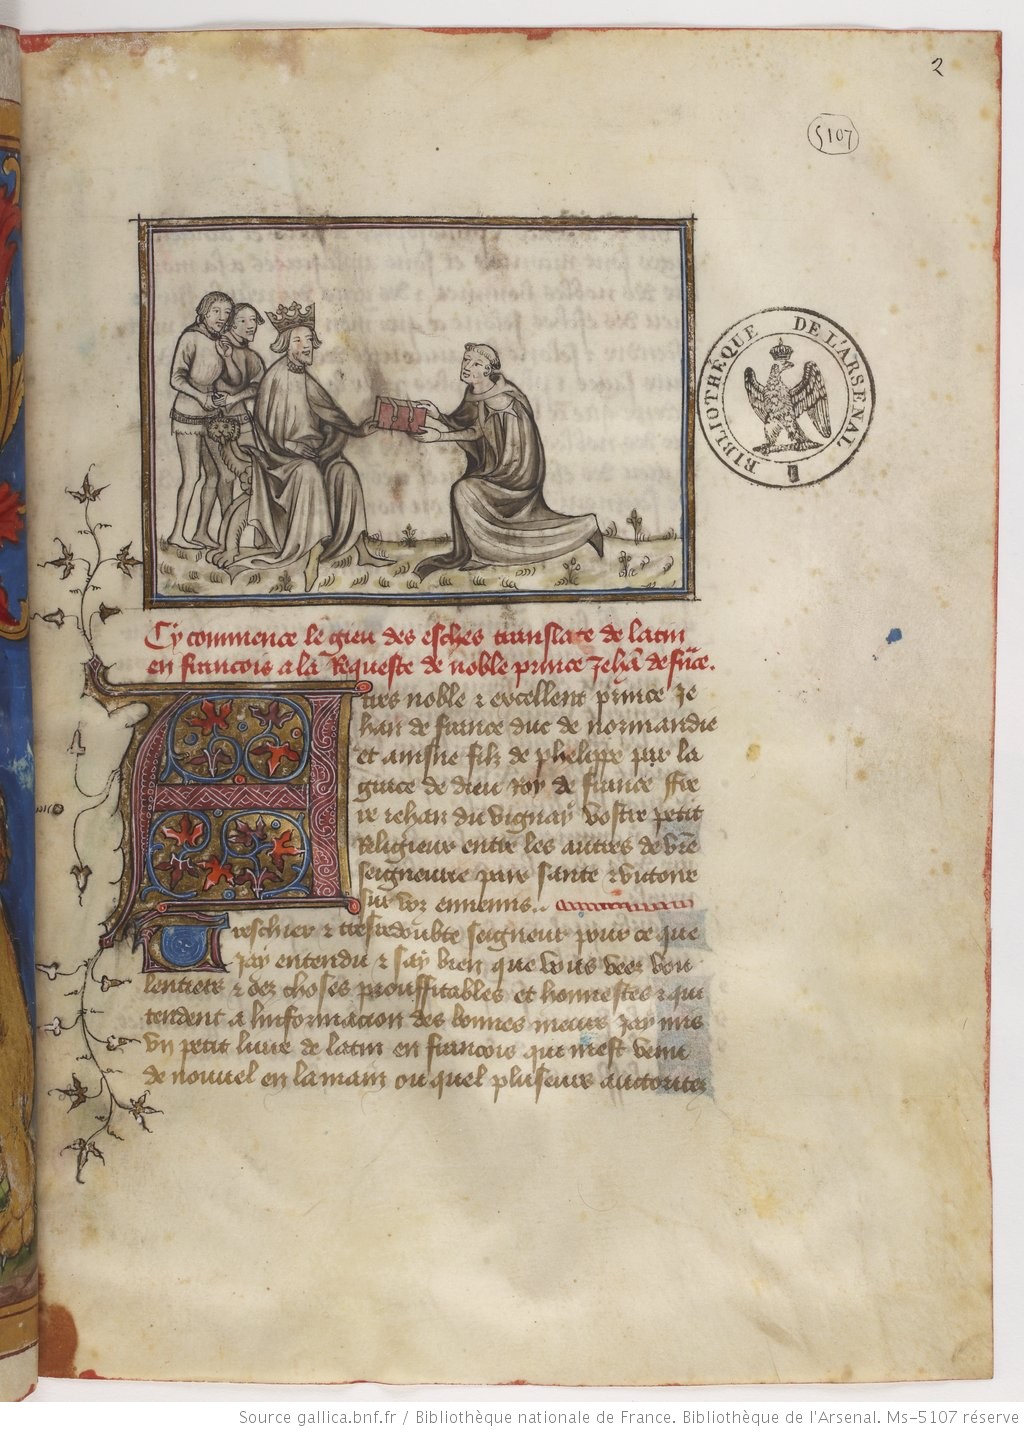 2
5107
BIBLIOTHÉQUE DE L'ARSENAL
Cy commence le gieu des esches translate de latin
en francois a la Requeste de noble prince Jehan de france.
A tres noble & excellent prince Je
han de france duc de normandie
et ainsne filz de phelippe par la
grace de dieu Roy de france ffre
re jehan du vignay vostre petit
Religieux entre les autres de vre
seigneurie paix sante & victoire
sur voz ennemis..
Treschier & tresredoubte seigneur pour ce que
Jay entendu & say bien que vous veez vou
lentiers & oez choses prouffitables et honnestes & qui
tendent a linformacion des bonnes meurs Jay mis
vn petit liure de latin en francois qui mest venu
de nouuel en la main ou quel pluseurs auctoritez
Source gallica.bnf.fr / Bibliothèque nationale de France. Bibliothèque de l'Arsenal. Ms-5107 réserve